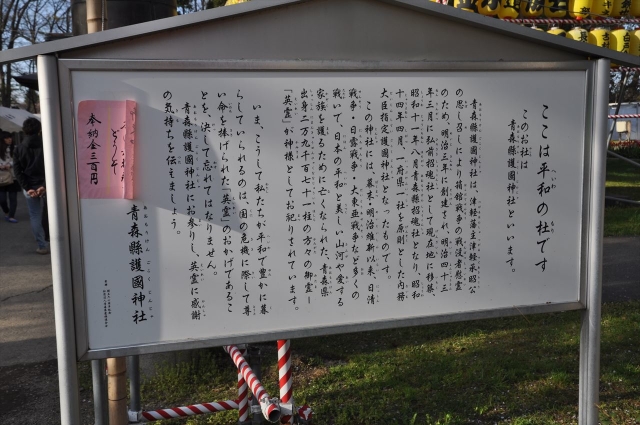 ここは平和の杜です
このお社は
青森縣護國神社といいます。
青森縣護國神社は、津軽藩主津軽承昭公
の思し召しにより箱館戦争の戦没者慰霊
のため、明治三年に創建され、明治四十三
年三月に私前招魂社として現在地に移築、
昭和十一年八月青森縣招魂社となり、昭和
十四年四月、一府県一社を原則とした内務
大臣指定護國神社となったものです。
この神社には、幕末・明治維新以来、日清
戦争・日露戦争・大東亜戦争など多くの
戦いで、日本の平和と美しい山河や愛する
家族を護るために亡くなられた、青森県
出身二万九千百七十一柱の方々の御霊―
「英霊」が神様としてお祀りされています。
いま、こうして私たちが平和で豊かに暮
らしていられるのは、国の危機に際して尊
い命を捧げられた"英霊"のおかげであるこ
とを、決して忘れてはなりません。
青森縣護國神社にお参りし、英霊に感謝
の気持ちを伝えましょう。
青森縣護國神社
どうぞ
奉納金三百円